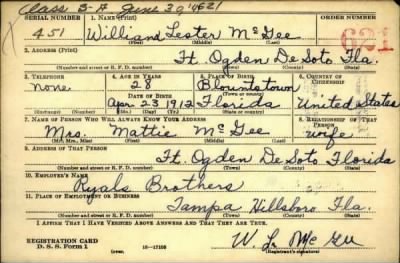 Class 3-A June 30 '4621
SERIAL NUMBER 1. NAME (Print)
451 William Lester McGee 621
(First) (Middle) (Last)
2. ADDRESS (Print)
Ft. Ogden De Soto Fla.
(Number and street or R. F. D. number) (Town) (County) (State)
3. TELEPHONE 4. AGE IN YEARS 5. PLACE OF BIRTH 6. COUNTRY OF CITIZENSHIP
none. 28 Blountstown
DATE OF BIRTH
Apr 23 1912 Florida United States
(Mo.) (Day) (Yr.) (State or country)
7. NAME OF PERSON WHO WILL ALWAYS KNOW YOUR ADDRESS 8. RELATIONSHIP OF THAT PERSON
Mrs. Mattie McGee wife
(Mr., Mrs., Miss) (First) (Middle) (Last)
9. ADDRESS OF THAT PERSON
Ft. Ogden De Soto Florida
(Number and street or R. F. D. number) (Town) (County) (State)
10. EMPLOYER'S NAME
Ryals Brothers
11. PLACE OF EMPLOYMENT OR BUSINESS
Tampa Hillsboro Fla.
(Number and street or R. F. D. number) (Town) (County) (State)
I AFFIRM THAT I HAVE VERIFIED ABOVE ANSWERS AND THAT THEY ARE TRUE.
REGISTRATION CARD
D. S. S. Form 1 (over) 16—17105 W L McGee
(Registrant's signature)